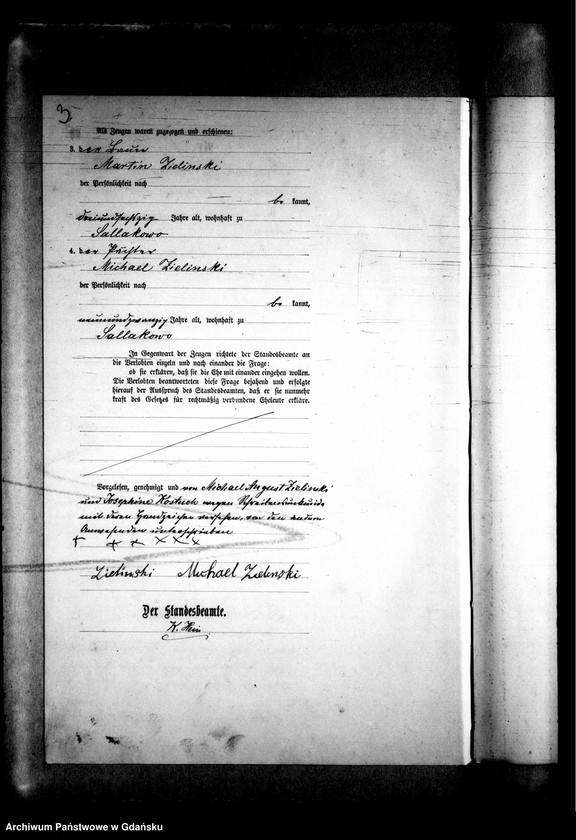 3
Als Zeugen waren zugezogen und erschienen:
3. der
Martin Zielinski
der Persönlichkeit nach
be kannt,
dreiundsechzig Jahre alt, wohnhaft zu
Sallakowo
4. der
Michael Zielinski
der Persönlichkeit nach
be kannt,
neunundzwanzig Jahre alt, wohnhaft zu
Sallakowo
In Gegenwart der Zeugen richtete der Standesbeamte an
die Verlobten einzeln und nach einander die Frage:
ob sie erklären, daß sie die Ehe mit einander eingehen wollen.
Die Verlobten beantworteten diese Frage bejahend und erfolgte
hierauf der Ausspruch des Standesbeamten, daß er sie nunmehr
kraft des Gesetzes für rechtmäßig verbundene Eheleute erkläre.
Vorgelesen, genehmigt und von Michael August Zielinski
und Josephine Kostuch wegen Schreibensunkunde
mit deren Handzeichen versehen, von den andern
Anwesenden unterschrieben
† † † × × ×
Zielinski Michael Zielinski
Der Standesbeamte.
K. Hein
Archiwum Państwowe w Gdańsku